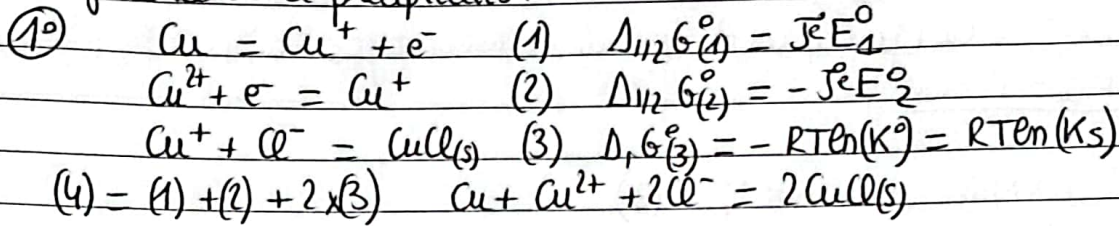 1° Cu = Cu⁺ + e⁻ (1) Δ₁/₂G°(1) = ℱE°₁
Cu²⁺ + e⁻ = Cu⁺ (2) Δ₁/₂G°(2) = - ℱE°₂
Cu⁺ + Cl⁻ = CuCl(s) (3) ΔrG°(3) = - RTln(K°) = RTln(Ks)
(4) = (1) + (2) + 2×(3) Cu + Cu²⁺ + 2Cl⁻ = 2CuCl(s)